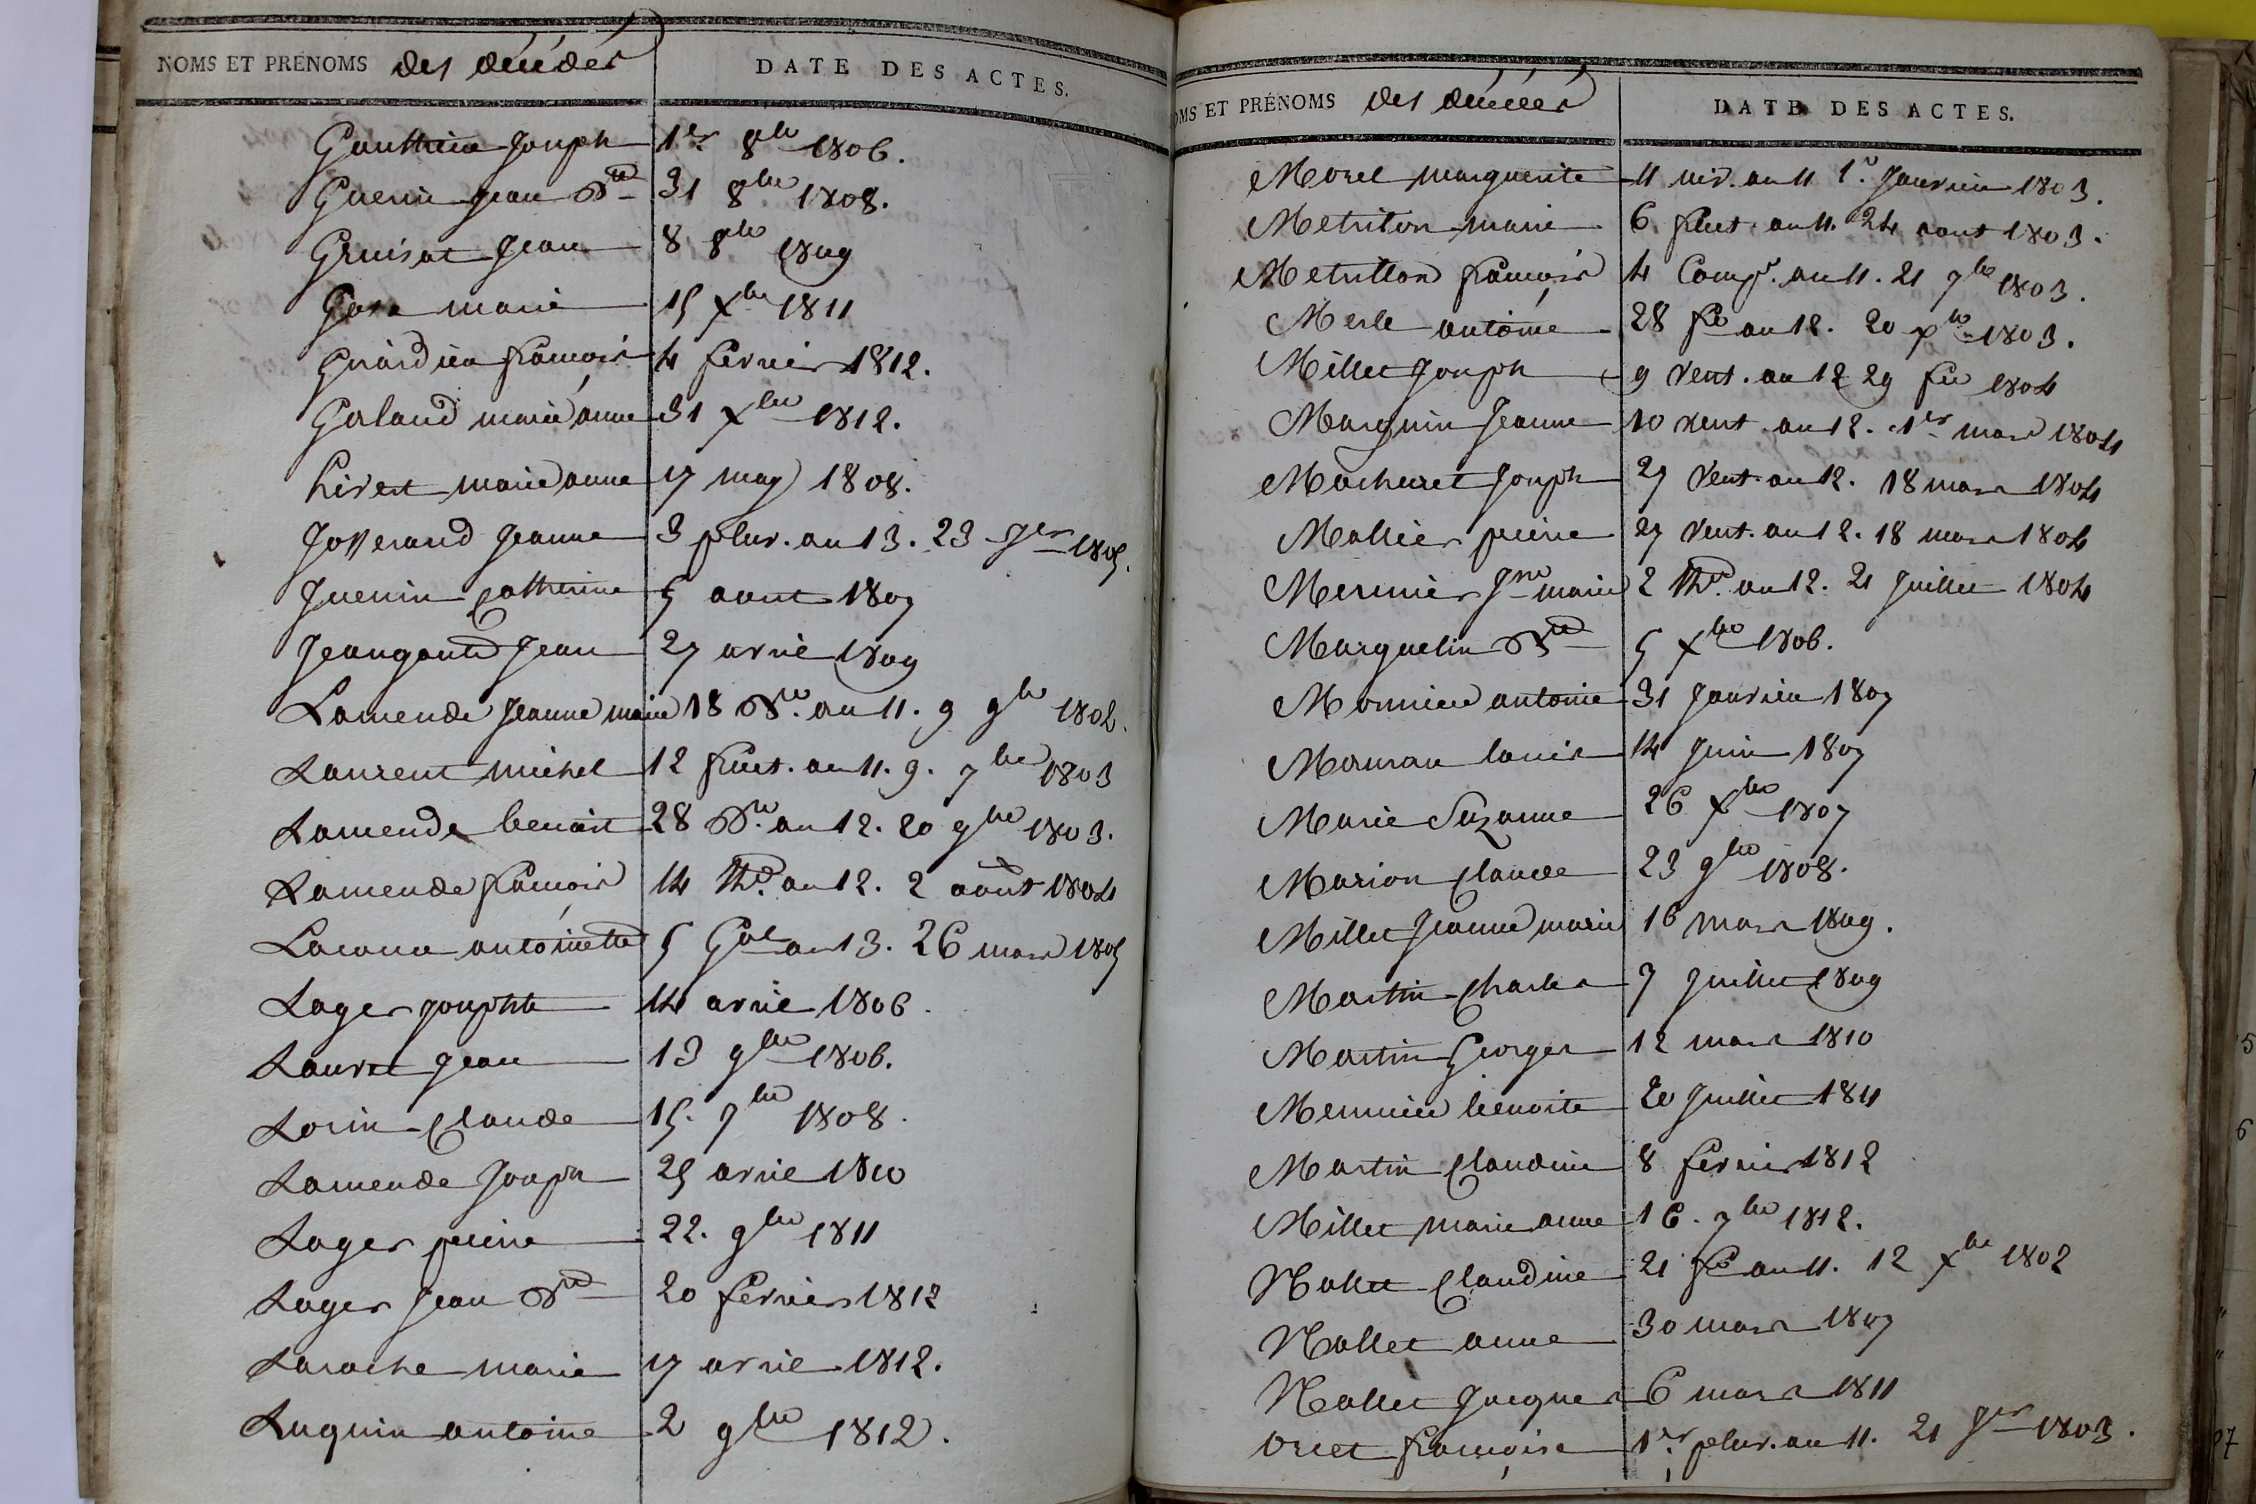 NOMS ET PRÉNOMS des décédés
DATE DES ACTES.
Gauthier Joseph 1er 8bre 1806.
Guerin Jean Bte 31 8bre 1808.
Gruisat Jean 8 8bre 1809
marie 15 Xbre 1811
francois 4 fevrier 1812.
Galand marie anne 31 Xbre 1812.
hivert marie anne 17 may 1808.
Josserand Jeanne 3 pluv. an 13. 23 Jer 1805.
Juenin Catherine 5 aout 1807
Jeangand Jean 27 avril 1809
Lamende Jeanne marie 18 Bre. an 11. 9 9bre 1802.
Laurent michel 12 fruct. an 11. 9. 7bre 1803
Lamende benoist 28 Bre. an 12. 20 9bre 1803.
Lamende francois 14 Thdor. an 12. 2 août 1804
antoinette 5 Gal an 13. 26 mars 1805
Lager Josephte 14 avril 1806.
Lauret Jean 13 9bre 1806.
Lorin Claude 15. 7bre 1808.
Lamende Joseph 25 avril 1810
Lager pierre 22. 9bre 1811
Lager Jean Bte 20 fevrier 1812
Laroche marie 17 avril 1812.
Luquin antoine 2 9bre 1812.
OMS ET PRÉNOMS des décédés
DATE DES ACTES.
Morel marguerite 11 niv. an 11 1er. Janvier 1803.
Metriton marie 6 fruct. an 11. 24 aout 1803.
Metrillon francois 4 Compre. an 11. 21 7bre 1803.
Merle antoine 28 fre an 12. 20 Xbre 1803.
Millet Joseph 9 vent. an 12 29 fer 1804
Marguin Jeanne 10 vent. an 12. 1er mars 1804
Machuret Joseph 27 vent. an 12. 18 mars 1804
Mallier pierre 27 vent. an 12. 18 mars 1804
Mermier Jne marie 2 Thdor. an 12. 21 Juillet 1804
Marguelin Bte 5 Xbre 1806.
Monnier antoine 31 Janvier 1807
louis 14 Juin 1807
Marie Suzanne 26 Xbre 1807
Marion Claude 23 9bre 1808.
Millet Jeanne marie 16 mars 1809.
Martin Charles 7 Juillet 1809
Martin Georges 12 mars 1810
benoite 20 Juillet 1811
Martin Claudine 8 fevrier 1812
Millet marie anne 16. 7bre 1812.
Nallet Claudine 21 fre an 11. 12 Xbre 1802
Nallet anne 30 mars 1807
Nallet Jacques 6 mars 1811
Orcet francoise 1er pluv. an 11. 21 Jer 1803.